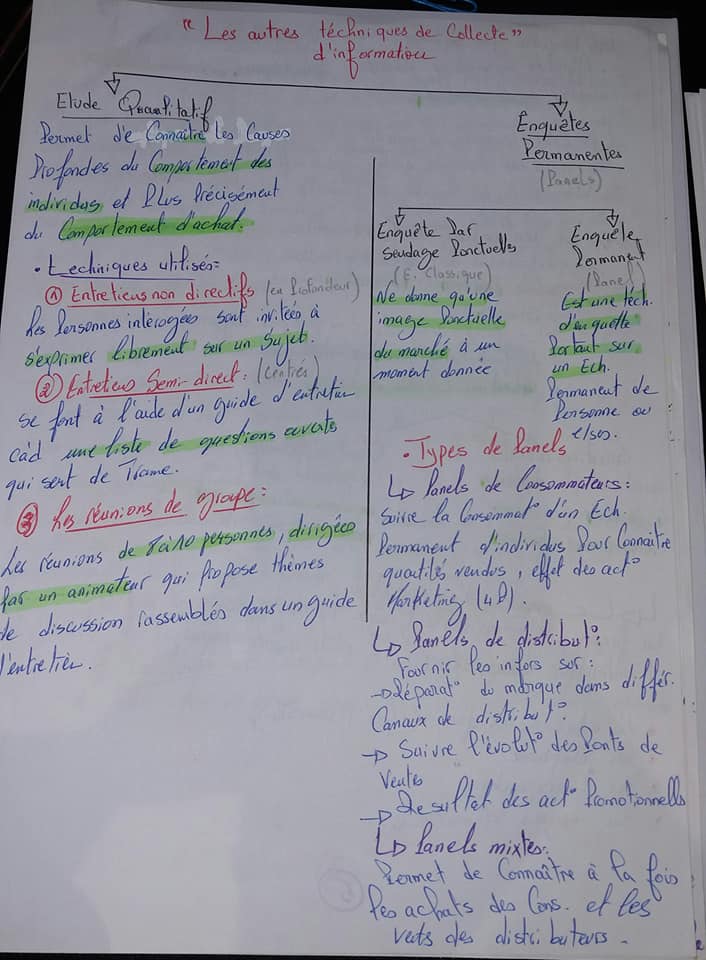 "Les autres téchniques de Collecte"
d'information
Etude Qualitatif
Permet d'e Connaître les Causes
Profondes du Comportement des
individus et Plus Précisément
du Comportement d'achat.
• techniques utilisés:
① Entretiens non directifs (en Profondeur)
Les Personnes intérogées sont invitées à
s'exprimer librement sur un Sujet.
② Entretiens Semi-direct. (Centrés)
se font à l'aide d'un guide d'entretien
càd une liste de questions ouverts
qui sert de Trame.
③ Les réunions de groupe:
Les réunions de 8 à 10 personnes, dirigées
Par un animateur qui Propose thèmes
de discussion rassemblés dans un guide
d'entretien.
Enquêtes
Permanentes
(Panels)
Enquête Par
Sondage Ponctuelles
(E. Classique)
Ne donne qu'une
image Ponctuelle
du marché à un
moment donnée
Enquête
Permanent
(Panel)
Est une téch.
d'enquette
Portant sur
un Ech.
Permanent de
Personne ou
e/ses.
• Types de Panels
↳ Panels de Consommateurs:
Suivre la Consommat° d'un Ech.
Permanent d'individus Pour Connaitre
quantités vendus, effet des act°
Marketing (4P).
↳ Panels de distribut°:
Fournir les infors sur:
→ Réparat° du marque dans différ.
Canaux de distribut°.
→ Suivre l'évolut° des Ponts de
Ventes
→ Resultet des act° Promotionnells
↳ Panels mixtes:
Permet de Connaître à la fois
les achats des Cons. et les
vents des distributeurs.